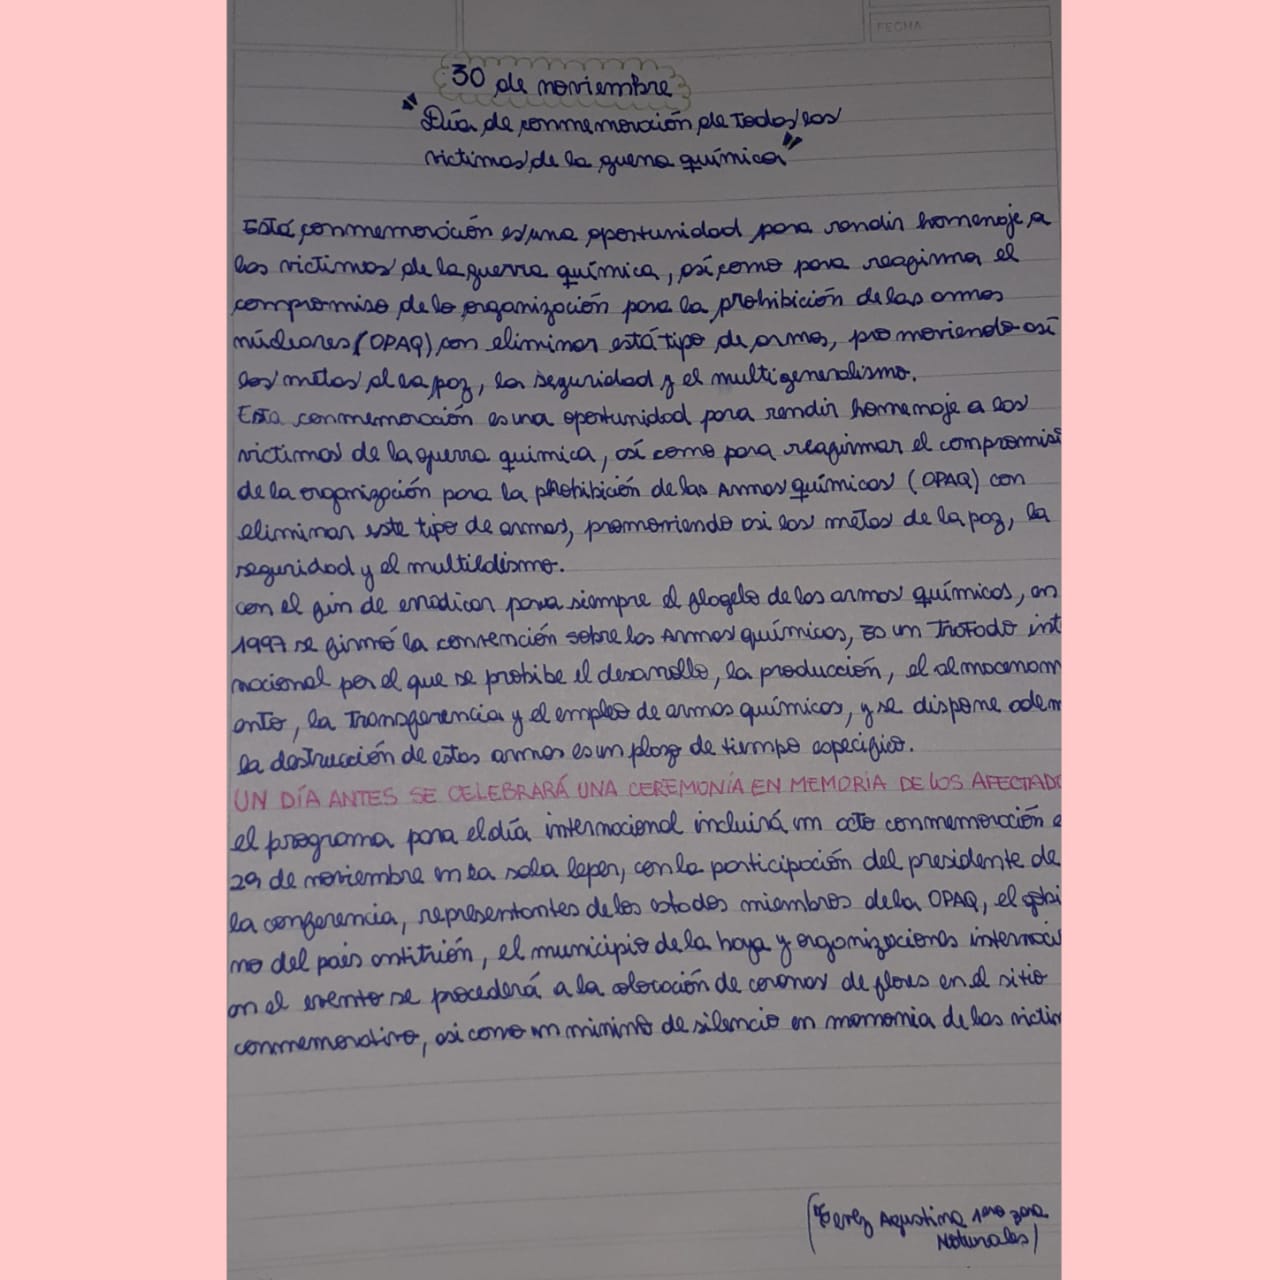 FECHA
30 de noviembre
"Día de conmemoración de todos los
victimas de la guerra química"
Está conmemoración es una oportunidad para rendir homenaje a
las victimas de la guerra química, así como para reafirma el
compromiso de la organización para la prohibición de las armas
núcleares (OPAQ) con eliminar está tipo de armas, promoviendo así
las metas de la paz, la seguridad y el multigeneralismo.
Esta conmemoración es una oportunidad para rendir homenaje a las
victimas de la guerra quimica, así como para reafirmar el compromis
de la organización para la prohibición de las Armas químicas (OPAQ) con
eliminar este tipo de armas, promorriendo asi las metas de la paz, la
seguridad y el multildismo.
con el fin de erradicar para siempre el flagelo de las armas químicas, en
1997 se firmó la convención sobre las Armas químicas, Es un Tratado int
nacional por el que se prohibe el desarrollo, la producción, el almacenam
ento, la transferencia y el empleo de armas químicas, y se dispone adem
la destrucción de estas armas es un plazo de tiempo especifico.
UN DÍA ANTES SE CELEBRARÁ UNA CEREMONÍA EN MEMORIA DE LOS AFECTADO
el programa para el día internacional incluirá un acto conmemoración e
29 de noviembre en la sala Ieper, con la participación del presidente de
la conferencia, representantes de los estados miembros de la OPAQ, el gobi
no del país anfitrión, el municipio de la haya y organizaciones internaci
en el evento se procederá a la colocación de coronas de flores en el sitio
conmemorativo, asi como un minino de silencio en momonia de las victim
(Perez Agustina 1ero 3era
Naturales)